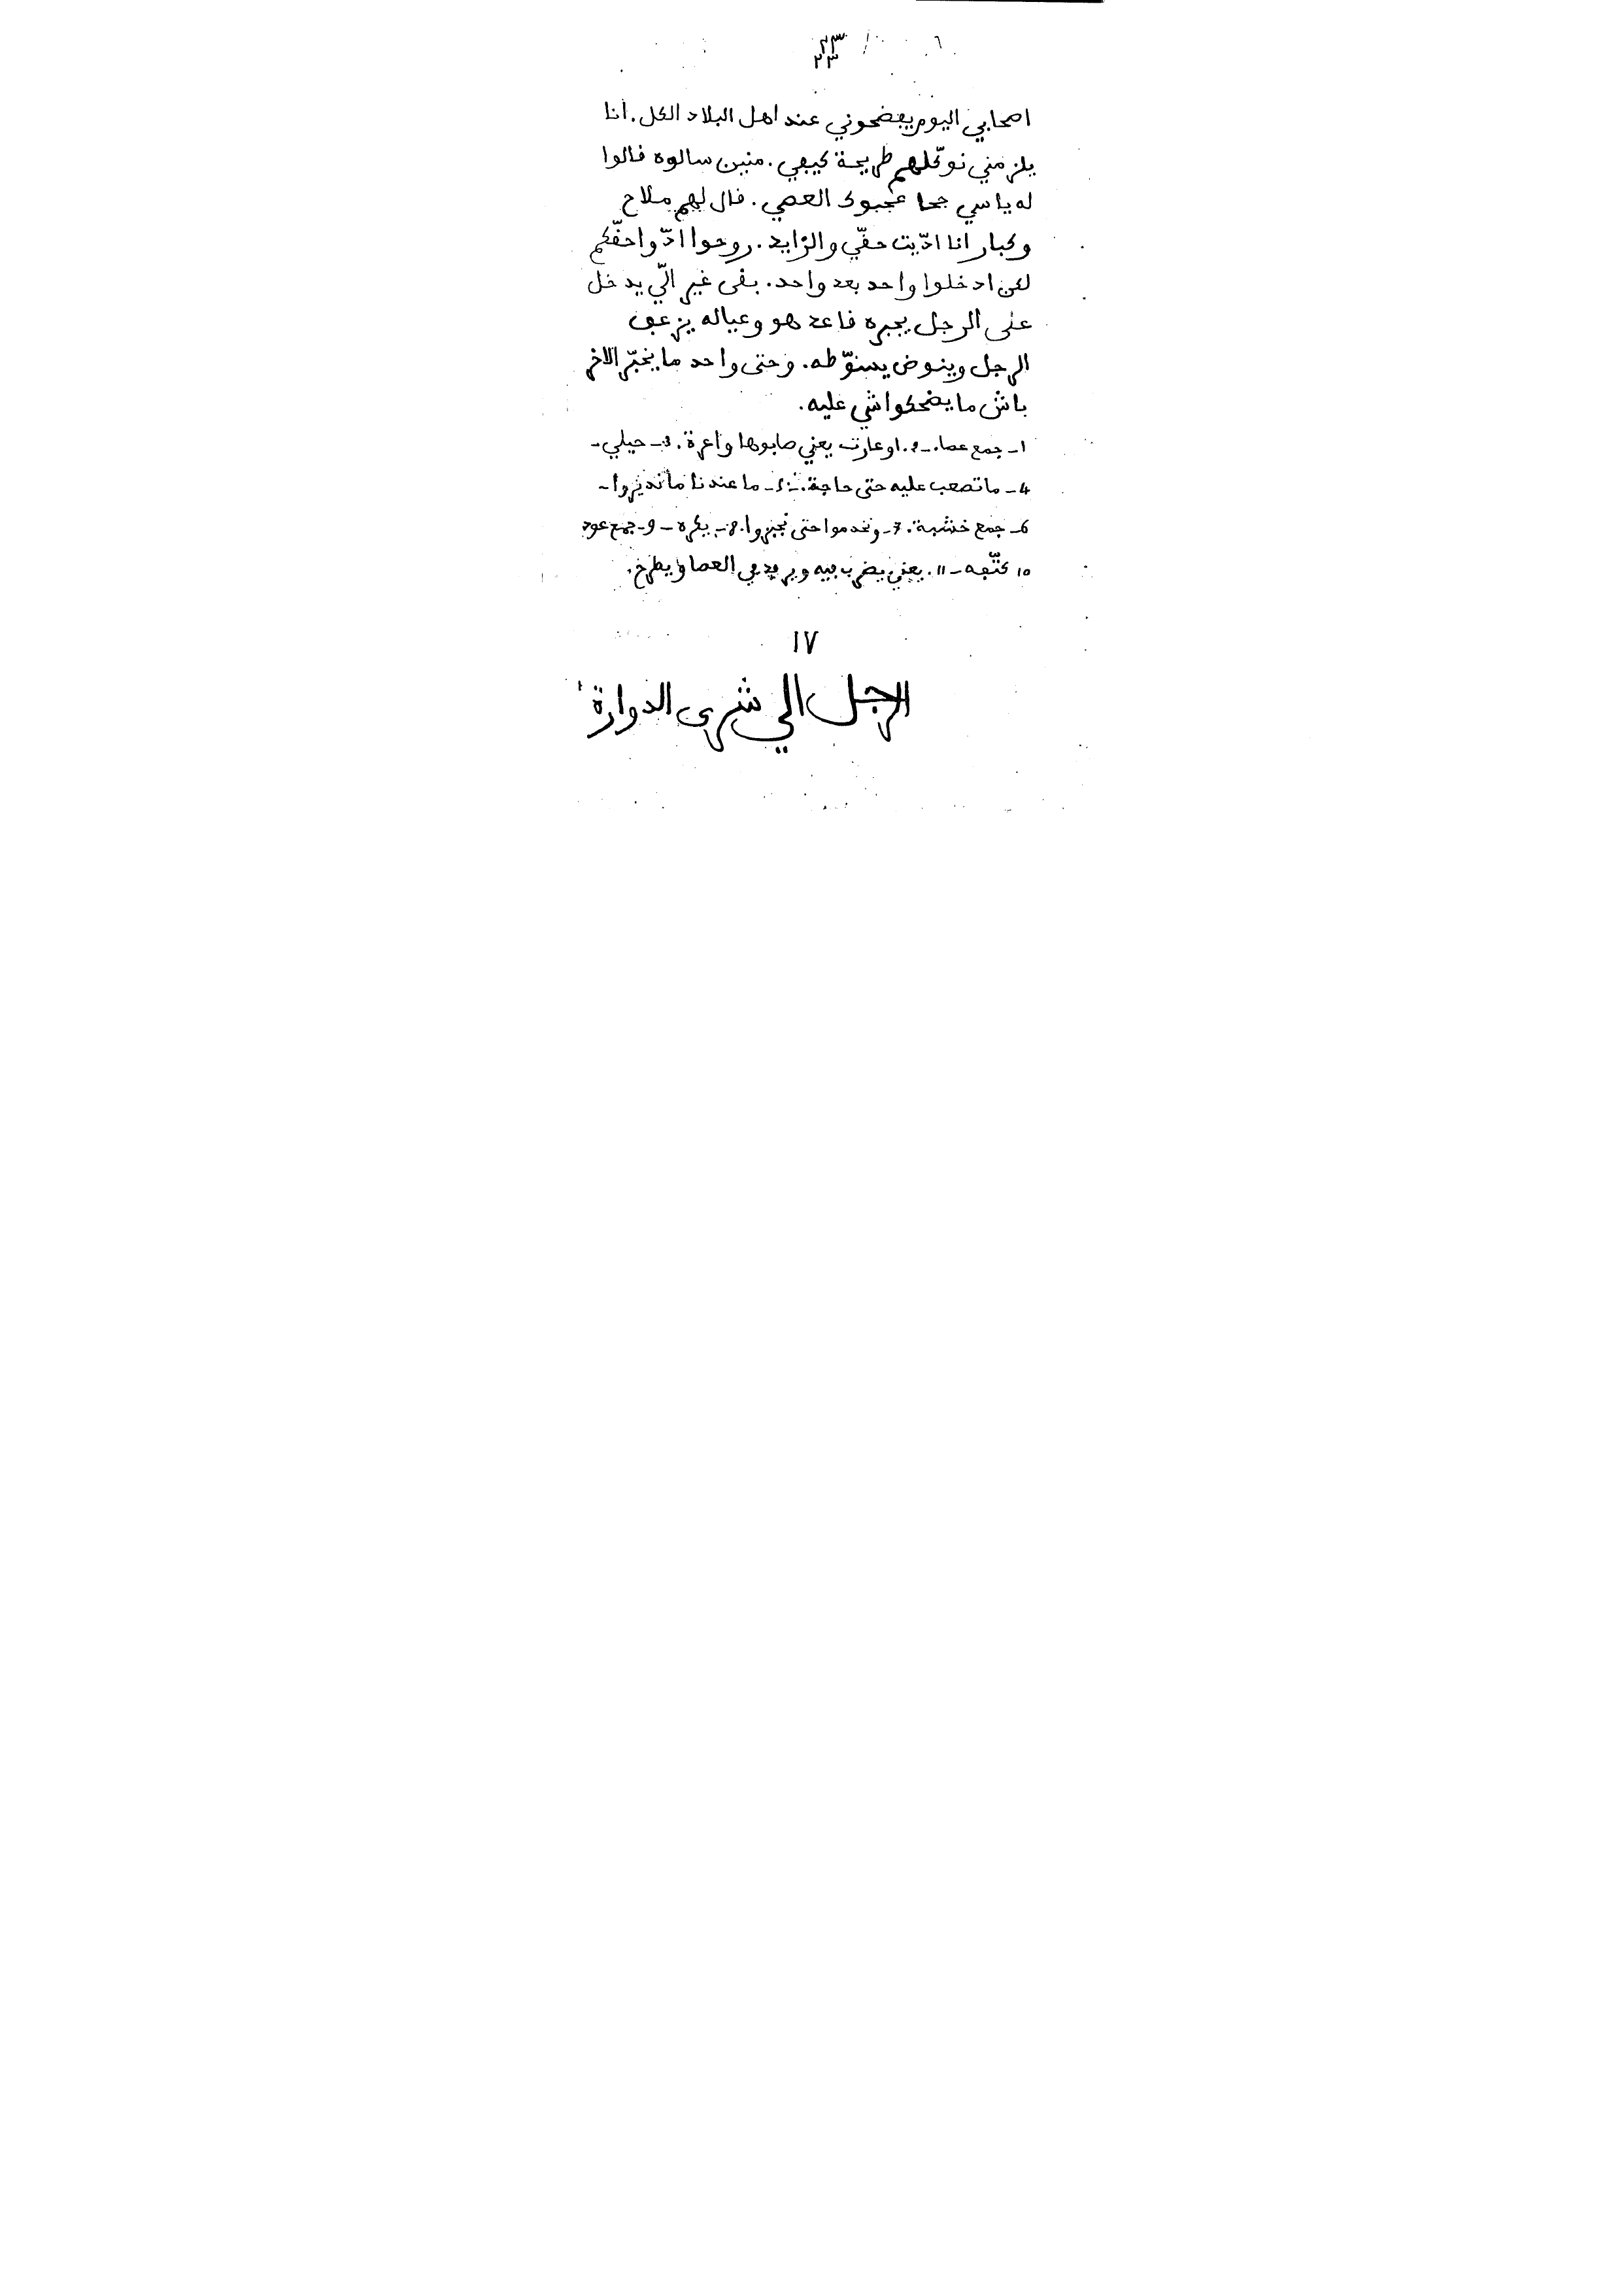 ٢٣
٢٣
اصحابي اليوم يفضحوني عند اهل البلاد الكل. انا
يلزمني نوكّلهم طريحة كيفي. منين سالوه فالوا
له يا سي جحا عجبوك العصي. فال لهم ملاح
وكبار انا ادّيت حفّي والزايد. روحوا ادّوا حفّكم
لكن ادخلوا واحد بعد واحد. بفى غير الّي يدخل
على الرجل يجبره فاعد هو وعياله يزعف
الرجل وينوض يسوّطه. وحتى واحد ما يخبّر الاخر
باش ما يضحكوا شي عليه.
1ـ جمع عصا. ـ 2. اوعارت يعني صابوها واعرة. 3ـ حيلي ـ
4ـ ما تصعب عليه حتى حاجة. ـ 5ـ ما عندنا ما نديروا ـ
6ـ جمع خشبة. 7ـ ونخدموا حتى نجبروا. 8ـ يكره ـ 9ـ جمع عود
10 كتّفه ـ 11. يعني يضرب بيه ويرفد العصا ويطرخ.
١٧
الرجل الي شرى الدوارة